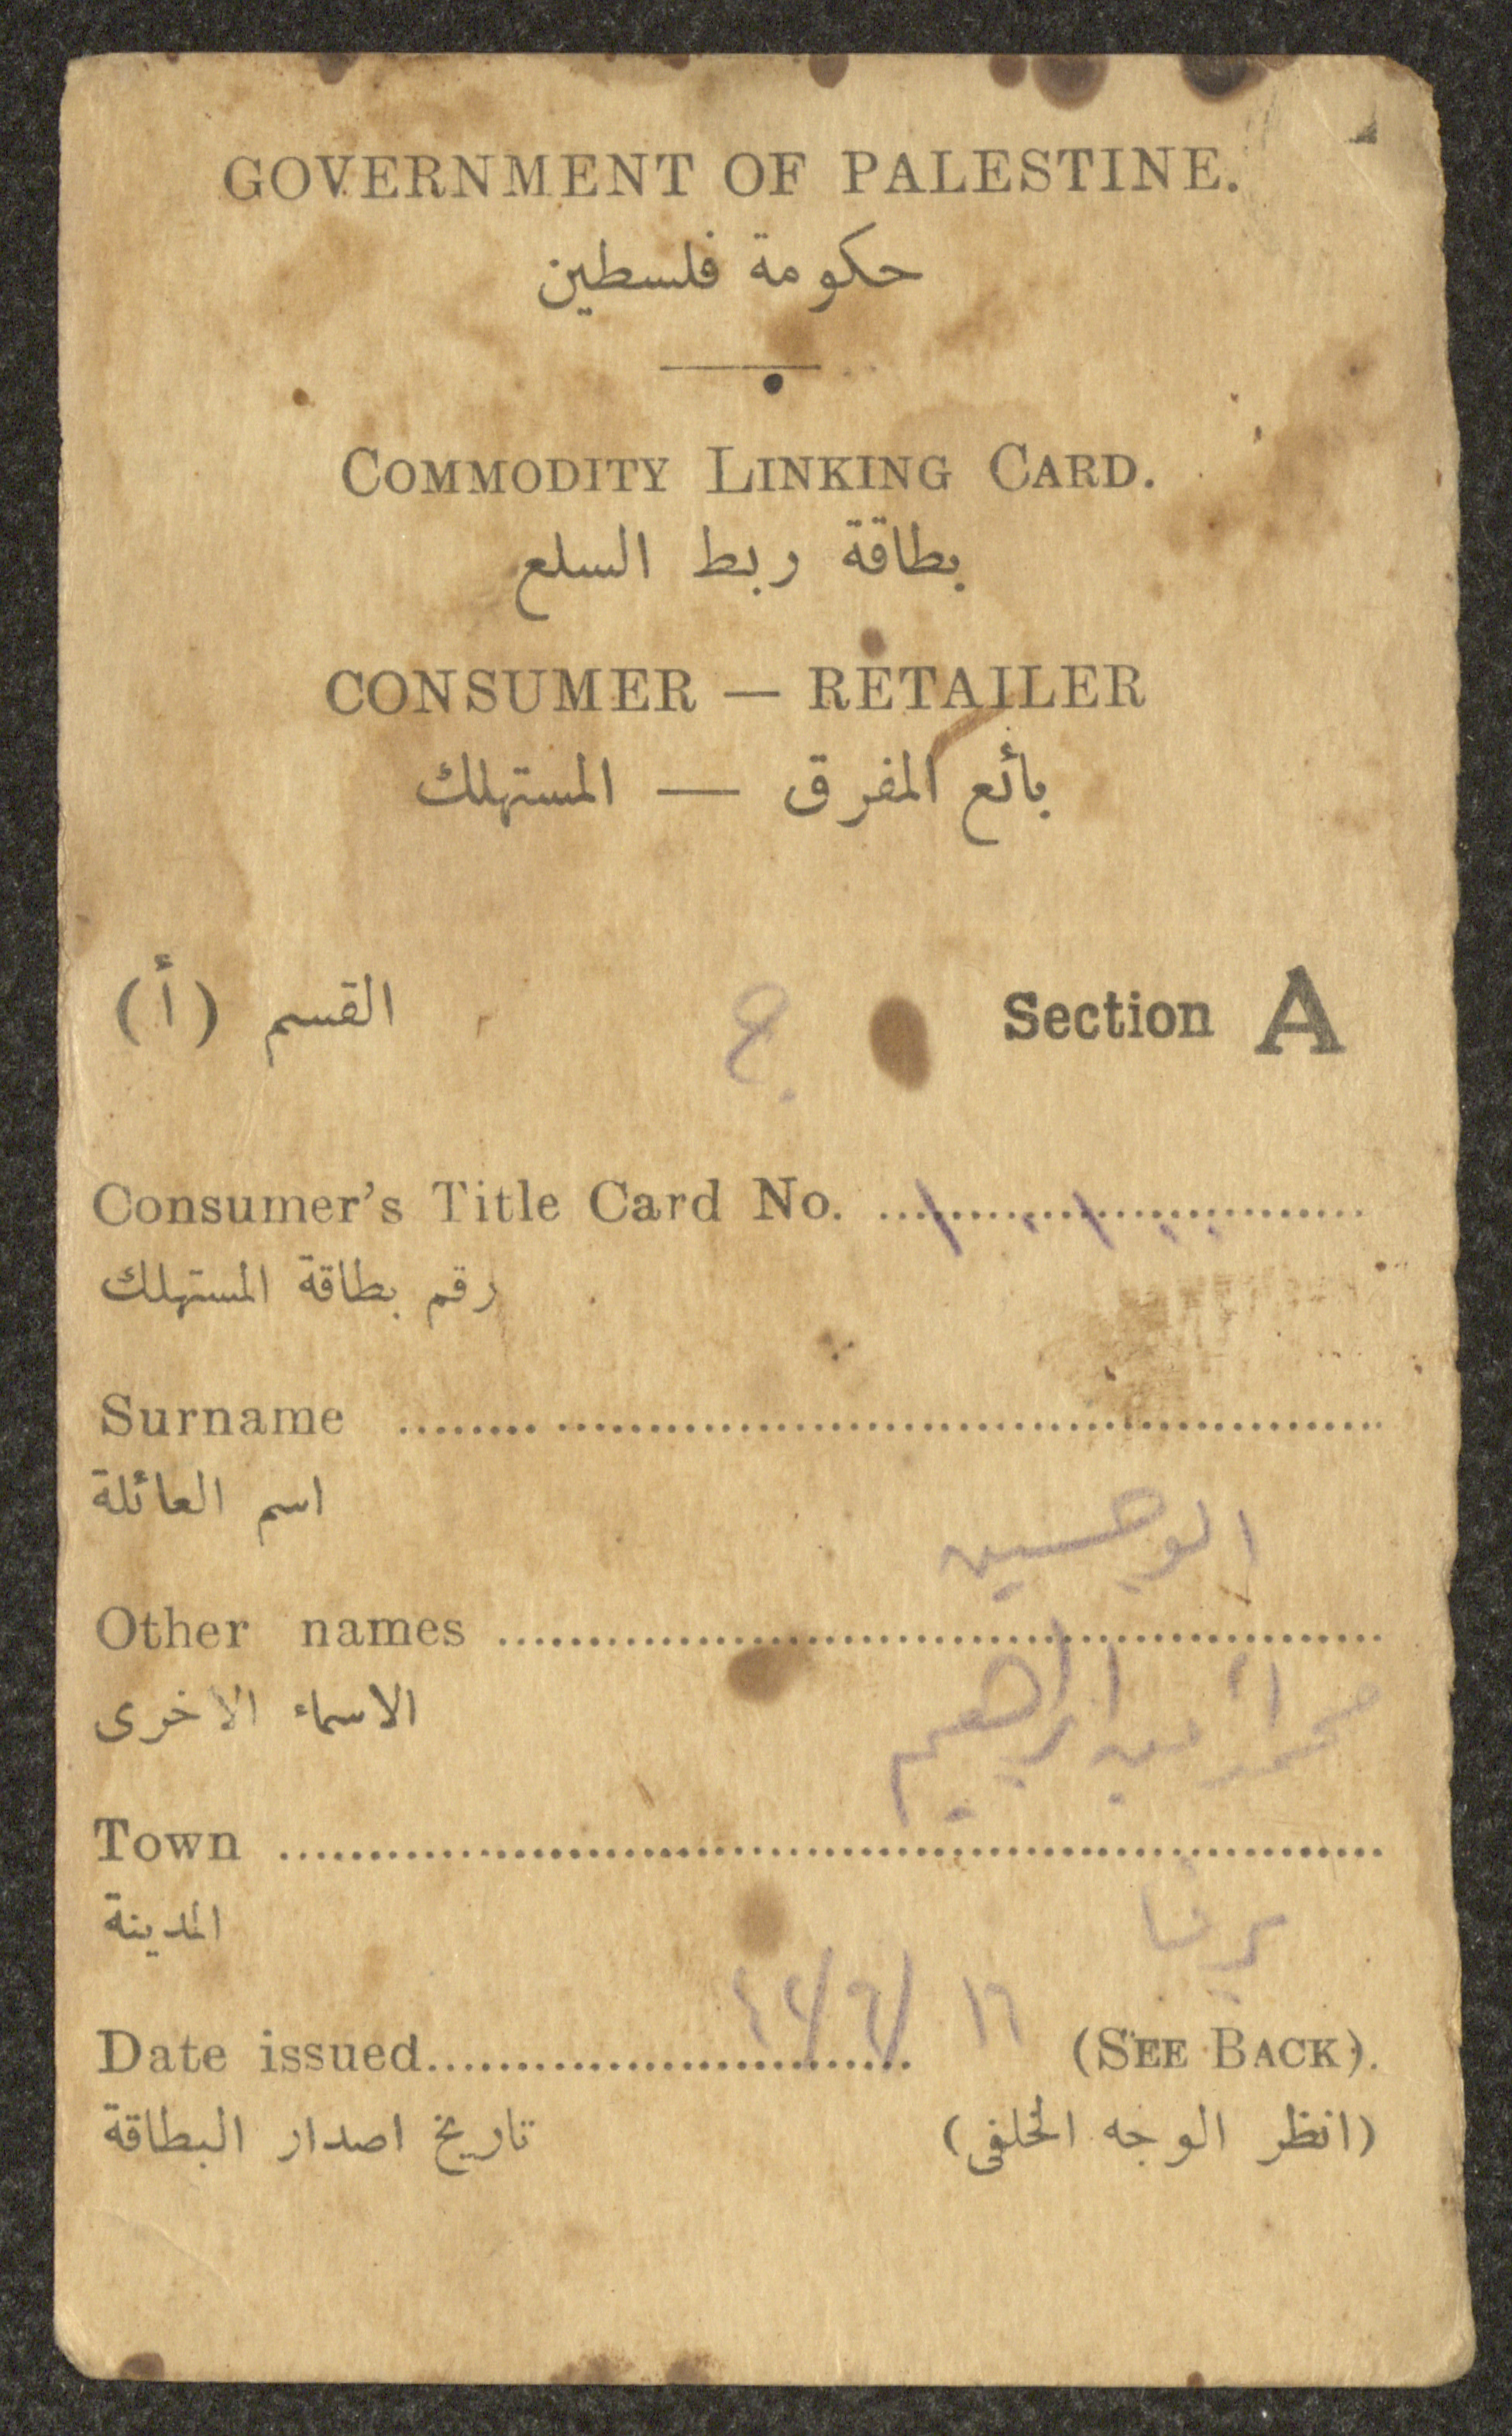 GOVERNMENT OF PALESTINE.
حكومة فلسطين
COMMODITY LINKING CARD.
بطاقة ربط السلع
CONSUMER — RETAILER
بائع المفرق — المستهلك
Section A القسم (أ)
Consumer's Title Card No. ١٠١٠٠
رقم بطاقة المستهلك
Surname
اسم العائلة
ابو حسين
Other names
الاسماء الاخرى
محمد امين ابراهيم
Town
المدينة
Date issued ١٦/٦/٤٢ (SEE BACK).
تاريخ اصدار البطاقة (انظر الوجه الخلفى)